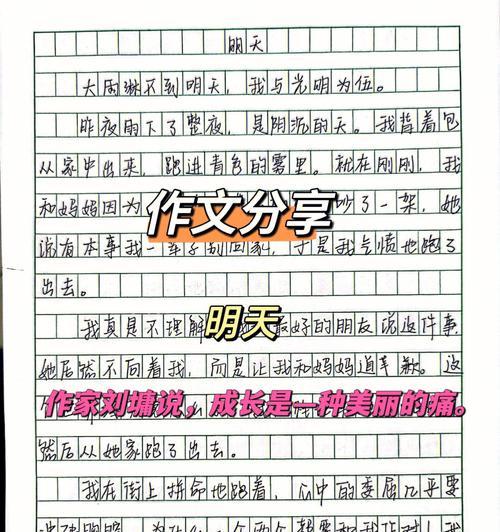 明天
大雨淋不到明天，我与光明为伍。
昨夜雨下了整夜，是阴沉的天。我背着包
从家中出来，跑进青色的雾里。就在刚刚，我
和妈妈因为
吵了一架，她
作文分享
说有本事我一辈子别回家，于是我气愤地跑了
出去。
我真是不理解
最好的朋友说这件事
明天
她居然不向着我，而是让我和妈妈道军歉。这
作家刘墉说，成长是一种美丽的痛。
然后从她家跑了出去。
我在街上拼命地跑着，心中的委屈几乎要